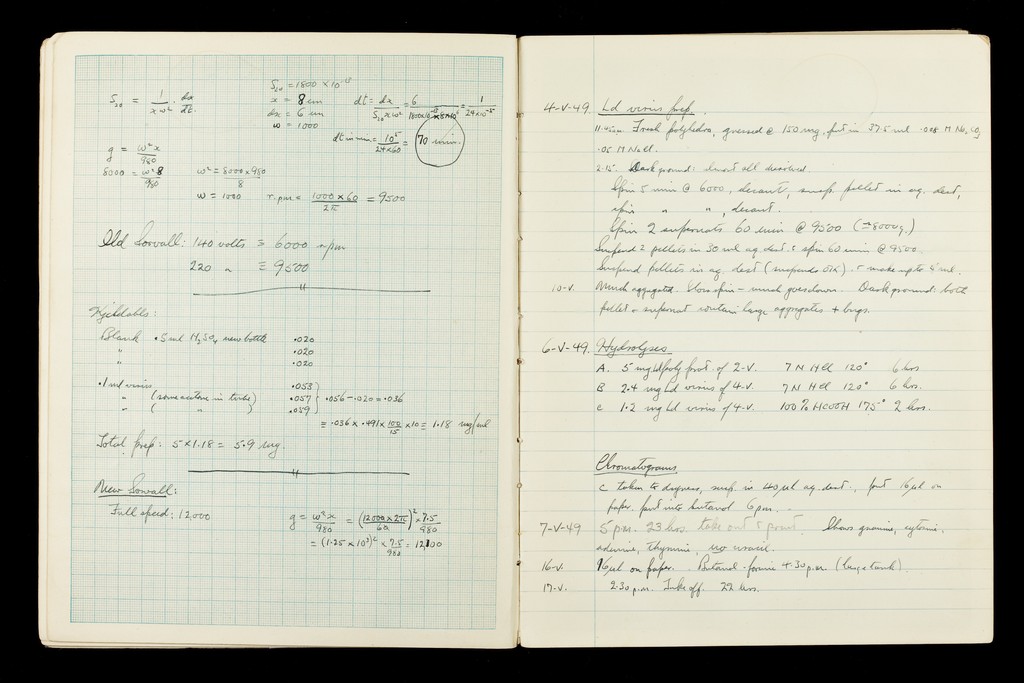 S₂₀ = 1/xw² . dx/dt.
S₂₀ = 1800 × 10⁻¹³
x = 8 cm
dx = 6 cm
w = 1000
dt = dx/S₂₀xw² = 6/1800×10⁻¹³×8×10⁶ = 1/24×10⁻⁵
dt in min = 10⁵/24×60 = 70 min.
g = w²x/980
8000 = w²8/980
w² = 8000×980/8
w = 1000 r.p.m = 1000×60/2π = 9500
Old Sorvall: 140 volts ≡ 6000 rpm
220 " ≡ 9500
Kjeldahls:
Blank .5 ml H₂SO₄ new bottle .020
" .020
" .020
.1 ml virus .053
" (some acetone in tube) .057 } .056 - .020 = .036
" ( " " ) .059
≡ .036 × .491 × 100/15 × 10 = 1.18 mg/ml
Total prep: 5 × 1.18 = 5.9 mg.
New Sorvall:
Full speed: 12,000
g = w²x/980 = (12,000×2π/60)² × 7.5/980
= (1.25 × 10³)² × 7.5/980 = 12,100
4-V-49. Ld virus prep.
11.45am. Fresh polyhedra, guessed @ 150 mg, put in 37.5 ml .008 M Na₂CO₃
.05 M NaCl.
2.15. Dark ground: almost all dissolved.
Spin 5 min @ 6000, decant, susp. pellet in aq. dest,
spin " " , decant.
Spin 2 supernats 60 min @ 9500 (≡ 8000g.)
Suspend 2 pellets in 30 ml aq. dest. & spin 60 min @ 9500
Suspend pellets in aq. dest (suspends OK) & make up to 5 ml.
10-V. Much aggregated. Slow spin - much goes down. Dark ground: both
pellet & supernat contain large aggregates + bugs.
6-V-49. Hydrolyses
A. 5 mg Ld poly prot. of 2-V. 7 N HCl 120° 6 hrs
B 2.4 mg Ld virus of 4-V. 7 N HCl 120° 6 hrs.
C 1.2 mg Ld virus of 4-V. 100% HCOOH 175° 2 hrs.
Chromatograms
C taken to dryness, susp. in 40 µl aq. dest., put 16 µl on
paper. Put into butanol 6 pm.
7-V-49 5 p.m. 23 hrs. take out & print Shows guanine, cytosine,
adenine, thymine, no uracil.
16-V. 16 µl on paper. Butanol-formic 4.30 p.m. (large tank).
17-V. 2.30 p.m. Take off. 22 hrs.